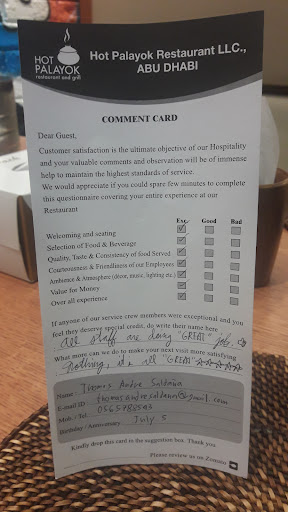 HOT
PALAYOK
restaurant and grill
Hot Palayok Restaurant LLC.,
ABU DHABI
COMMENT CARD
Dear Guest,
Customer satisfaction is the ultimate objective of our Hospitality
and your valuable comments and observation will be of immense
help to maintain the highest standards of service.
We would appreciate if you could spare few minutes to complete
this questionnaire covering your entire experience at our
Restaurant
Exc. Good Bad
Welcoming and seating
Selection of Food & Beverage
Quality, Taste & Consistency of food Served
Courteousness & Friendliness of our Employees
Ambience & Atmosphere (decor, music, lighting etc.)
Value for Money
Over all experience
If anyone of our service crew members were exceptional and you
feel they deserve special credit, do write their name here
All staff are doing "GREAT" job.
What more can we do to make your next visit more satisfying
Nothing, it's all "GREAT" ☆☆☆☆☆
Name : Thomas Andre Saldaña
E-mail ID : thomasandresaldana@gmail.com
Mob. / Tel. : 0565788503
Birthday / Anniversary July 5
Kindly drop this card in the suggestion box. Thank you.
Please review us on Zomato